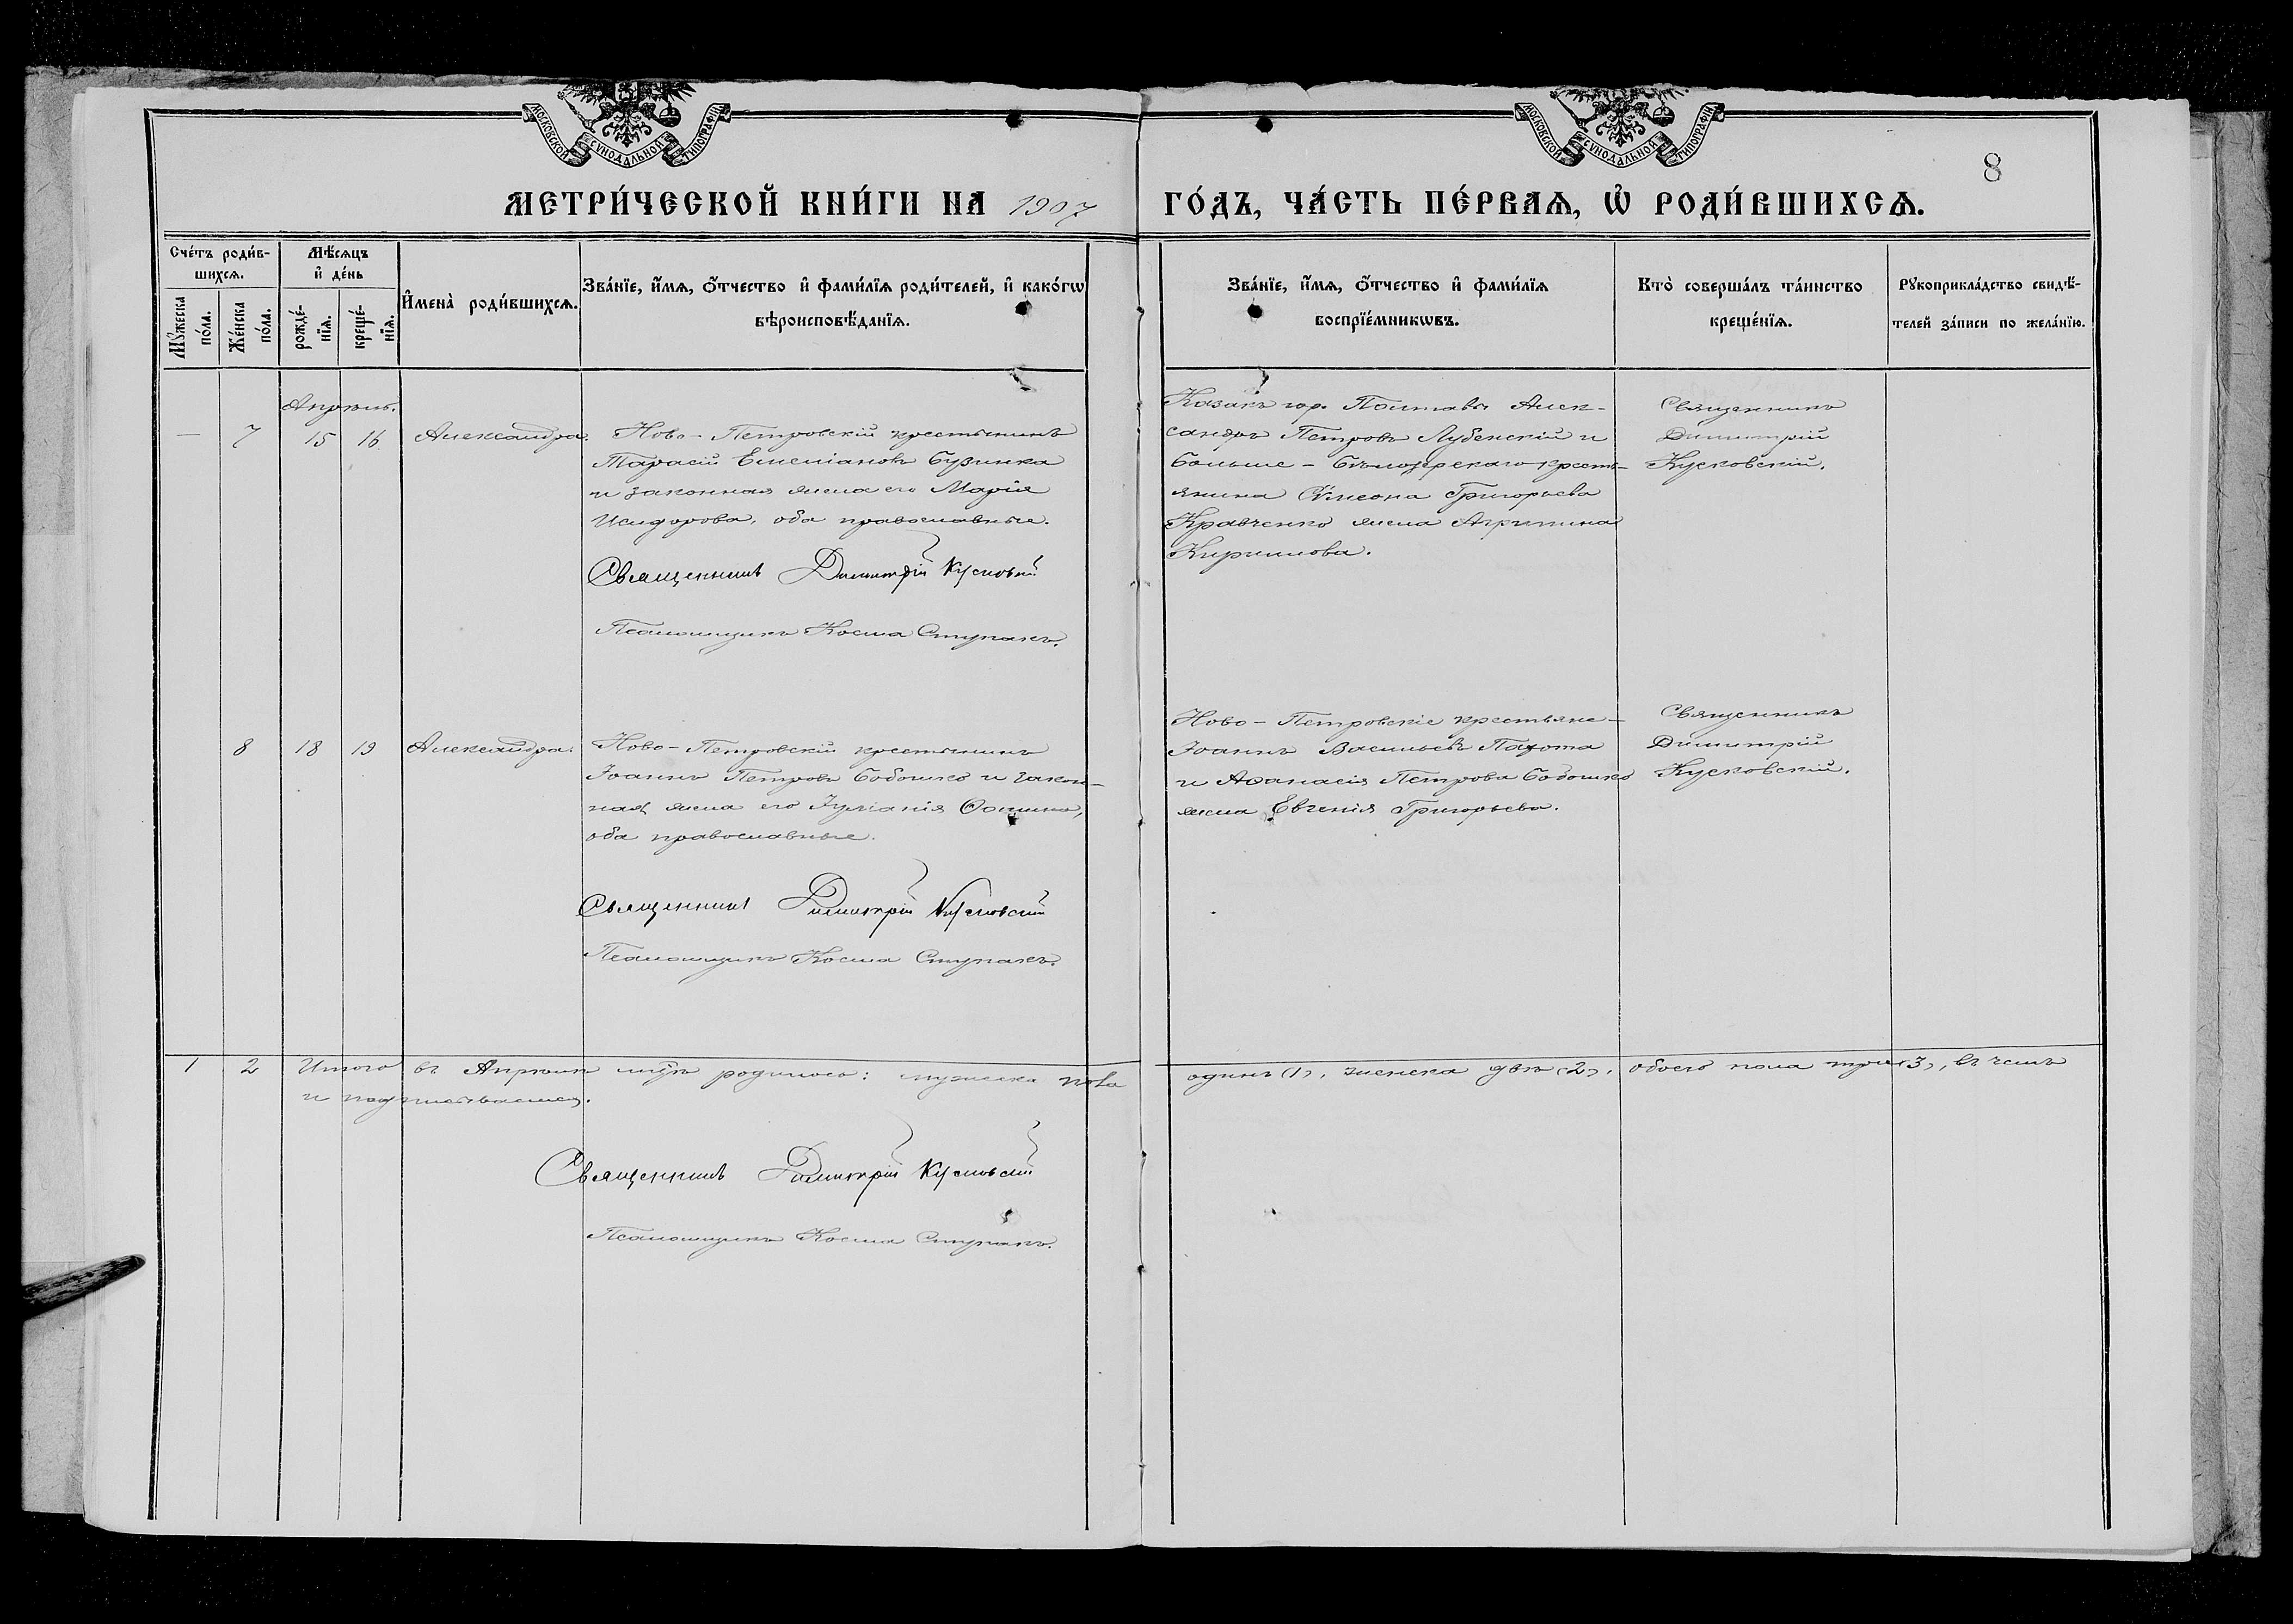 МОСКОВСКОЙ СѴНОДАЛЬНОЙ ТИПОГРАФІИ
МОСКОВСКОЙ СѴНОДАЛЬНОЙ ТИПОГРАФІИ
8
МЕТРИ́ЧЕСКОЙ КНИ́ГИ НА 1907 ГО́ДЪ, ЧА́СТЬ ПЕ́РВАѦ, Ѡ РОДИ́ВШИХСѦ.
Сче́тъ роди́в-
шихсѧ.
Мѣ́сѧцъ
и҆ де́нь
Мꙋ́жеска
по́ла.
Же́нска
по́ла.
рожде́-
нїѧ.
креще́-
нїѧ.
И҆мена̀ роди́вшихсѧ.
Зва́нїе, и҆́мѧ, ѻ҆́тчество и҆ фами́лїѧ роди́телей, и҆ како́гѡ
вѣроисповѣ́данїѧ.
Зва́нїе, и҆́мѧ, ѻ҆́тчество и҆ фами́лїѧ
воспрїе́мникѡвъ.
Кто̀ соверша́лъ та́инство
креще́нїѧ.
Рꙋкоприкла́дство свидѣ́-
телей за́писи по жела́нїю.
Апрѣль.
— 7 15 16 Александра.
Ново-Петровскій крестьянинъ
Тарасій Емеліановъ Бузинка
и законная жена его Марія
Исидорова, оба православные.
Священникъ Димитрій Кусковскій
Псаломщикъ Косма Ступакъ.
Казакъ гор. Полтавы Алек-
сандръ Петровъ Лубенскій и
Больше-Бѣлозерскаго кресть-
янина Сѵмеона Григорьева
Кравченко жена Агрипина
Кириллова.
Священникъ
Димитрій
Кусковскій.
8 18 19 Александра.
Ново-Петровскій крестьянинъ
Іоаннъ Петровъ Бобошко и закон-
ная жена его Іуліанія
оба православные.
Священникъ Димитрій Кусковскій
Псаломщикъ Косма Ступакъ.
Ново-Петровскіе крестьяне-
Іоаннъ Васильевъ Пахота
и Аѳанасія Петрова Бобошко
жена Евгенія Григорьева.
Священникъ
Димитрій
Кусковскій.
1 2 Итого въ Апрѣлѣ мцѣ родилось: мужеска пола один(1), женска двѣ(2), обоего пола три(3), въ чемъ
и подписываемся.
Священникъ Димитрій Кусковскій
Псаломщикъ Косма Ступакъ.